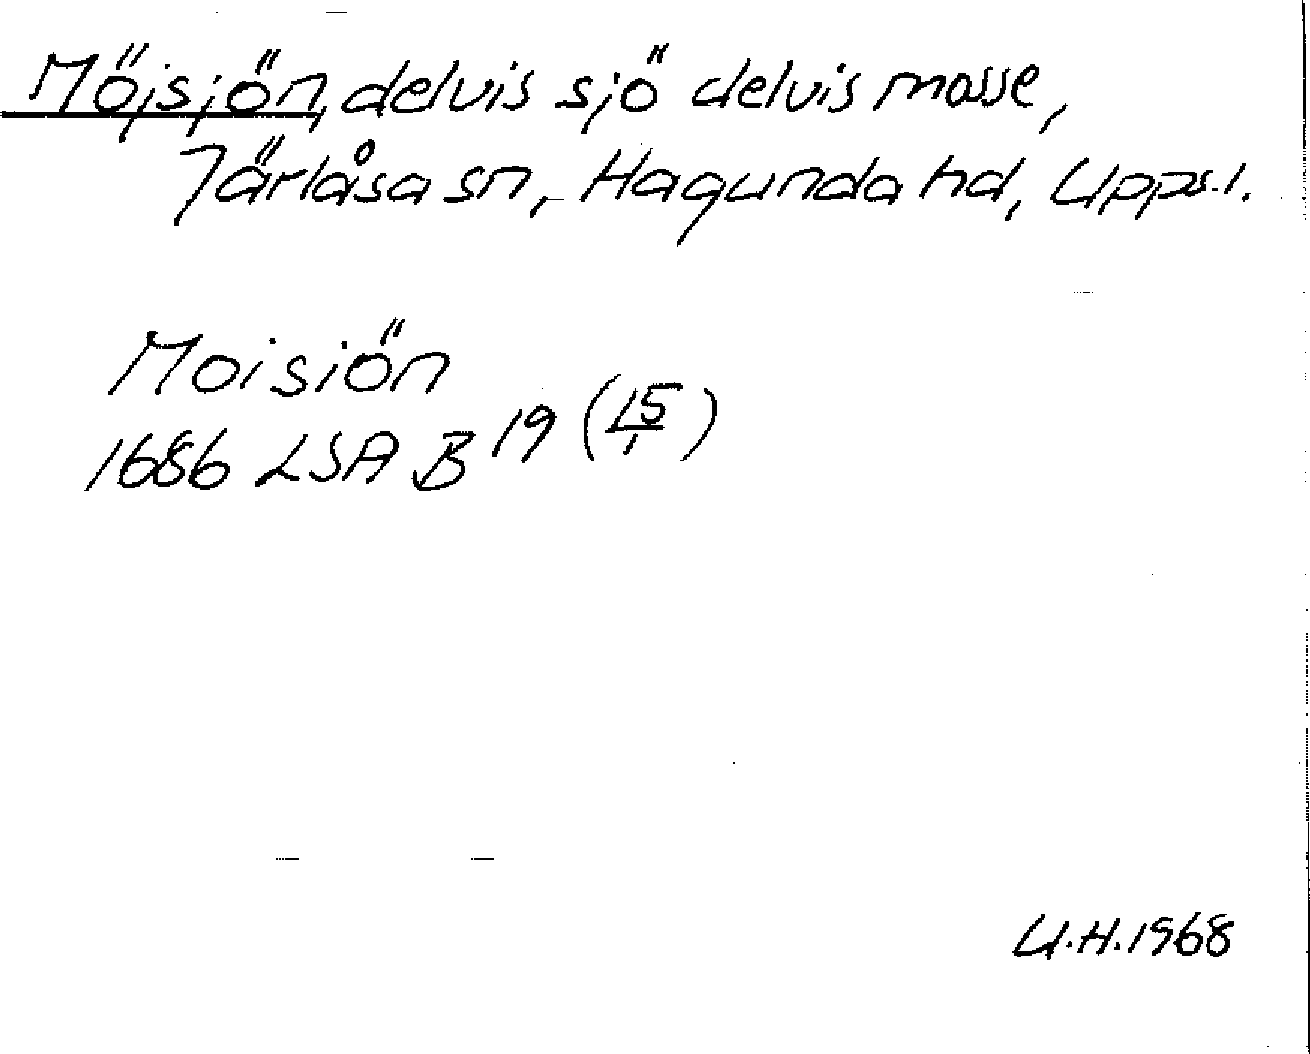 Möjsjön, delvis sjö delvis mosse,
Järlåsa sn, Hagunda hd, Upps.l.
Moisiön
1686 LSA B 19 (15/1)
U.H.1968